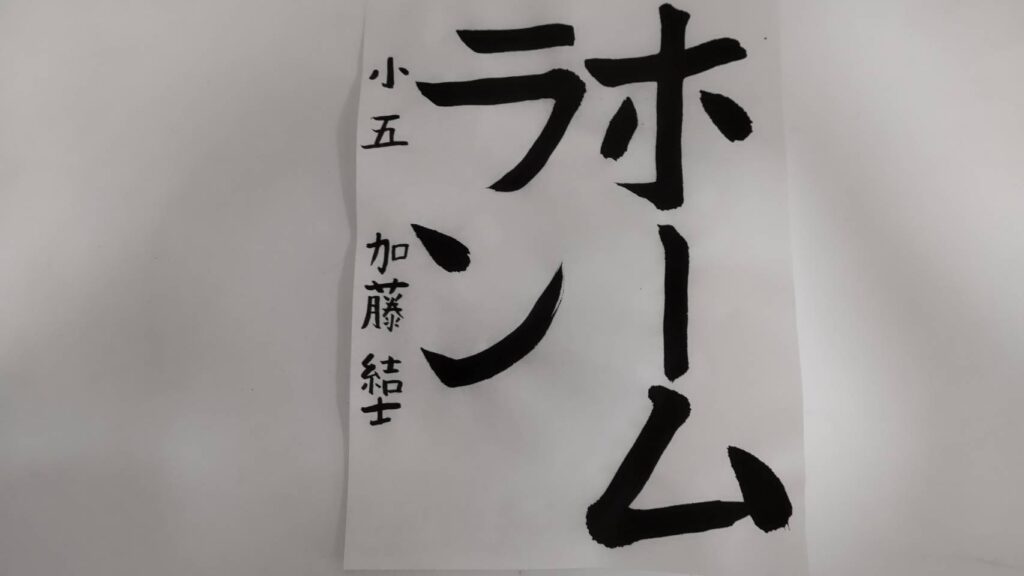 ホーム
ラン
小五 加藤結士